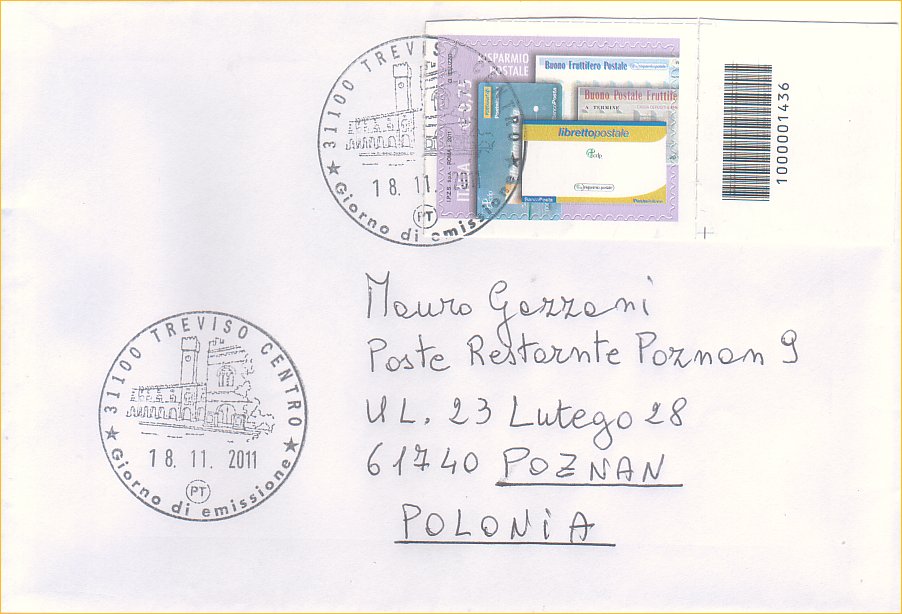 RISPARMIO
POSTALE
Buono Fruttifero Postale
Buono Postale Fruttife
A TERMINE
librettopostale
cdp
risparmio postale
BancoPosta
Posteitaliane
I.P.Z.S. S.p.A. - ROMA - 2011
1000001436
31100 TREVISO CENTRO
18.11.2011
PT
Giorno di emissione
Mauro Gazzani
Poste Restarnte Poznan 9
UL. 23 Lutego 28
61740 POZNAN
POLONIA
31100 TREVISO CENTRO
18.11.2011
PT
Giorno di emissione